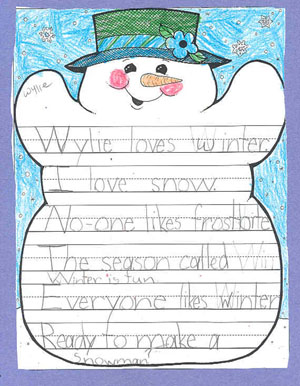 Wylie
Wylie loves Winter.
I love snow.
No-one likes frostbite
The season called Win
Winter is fun.
Everyone likes Winter
Ready to make a
snowman?